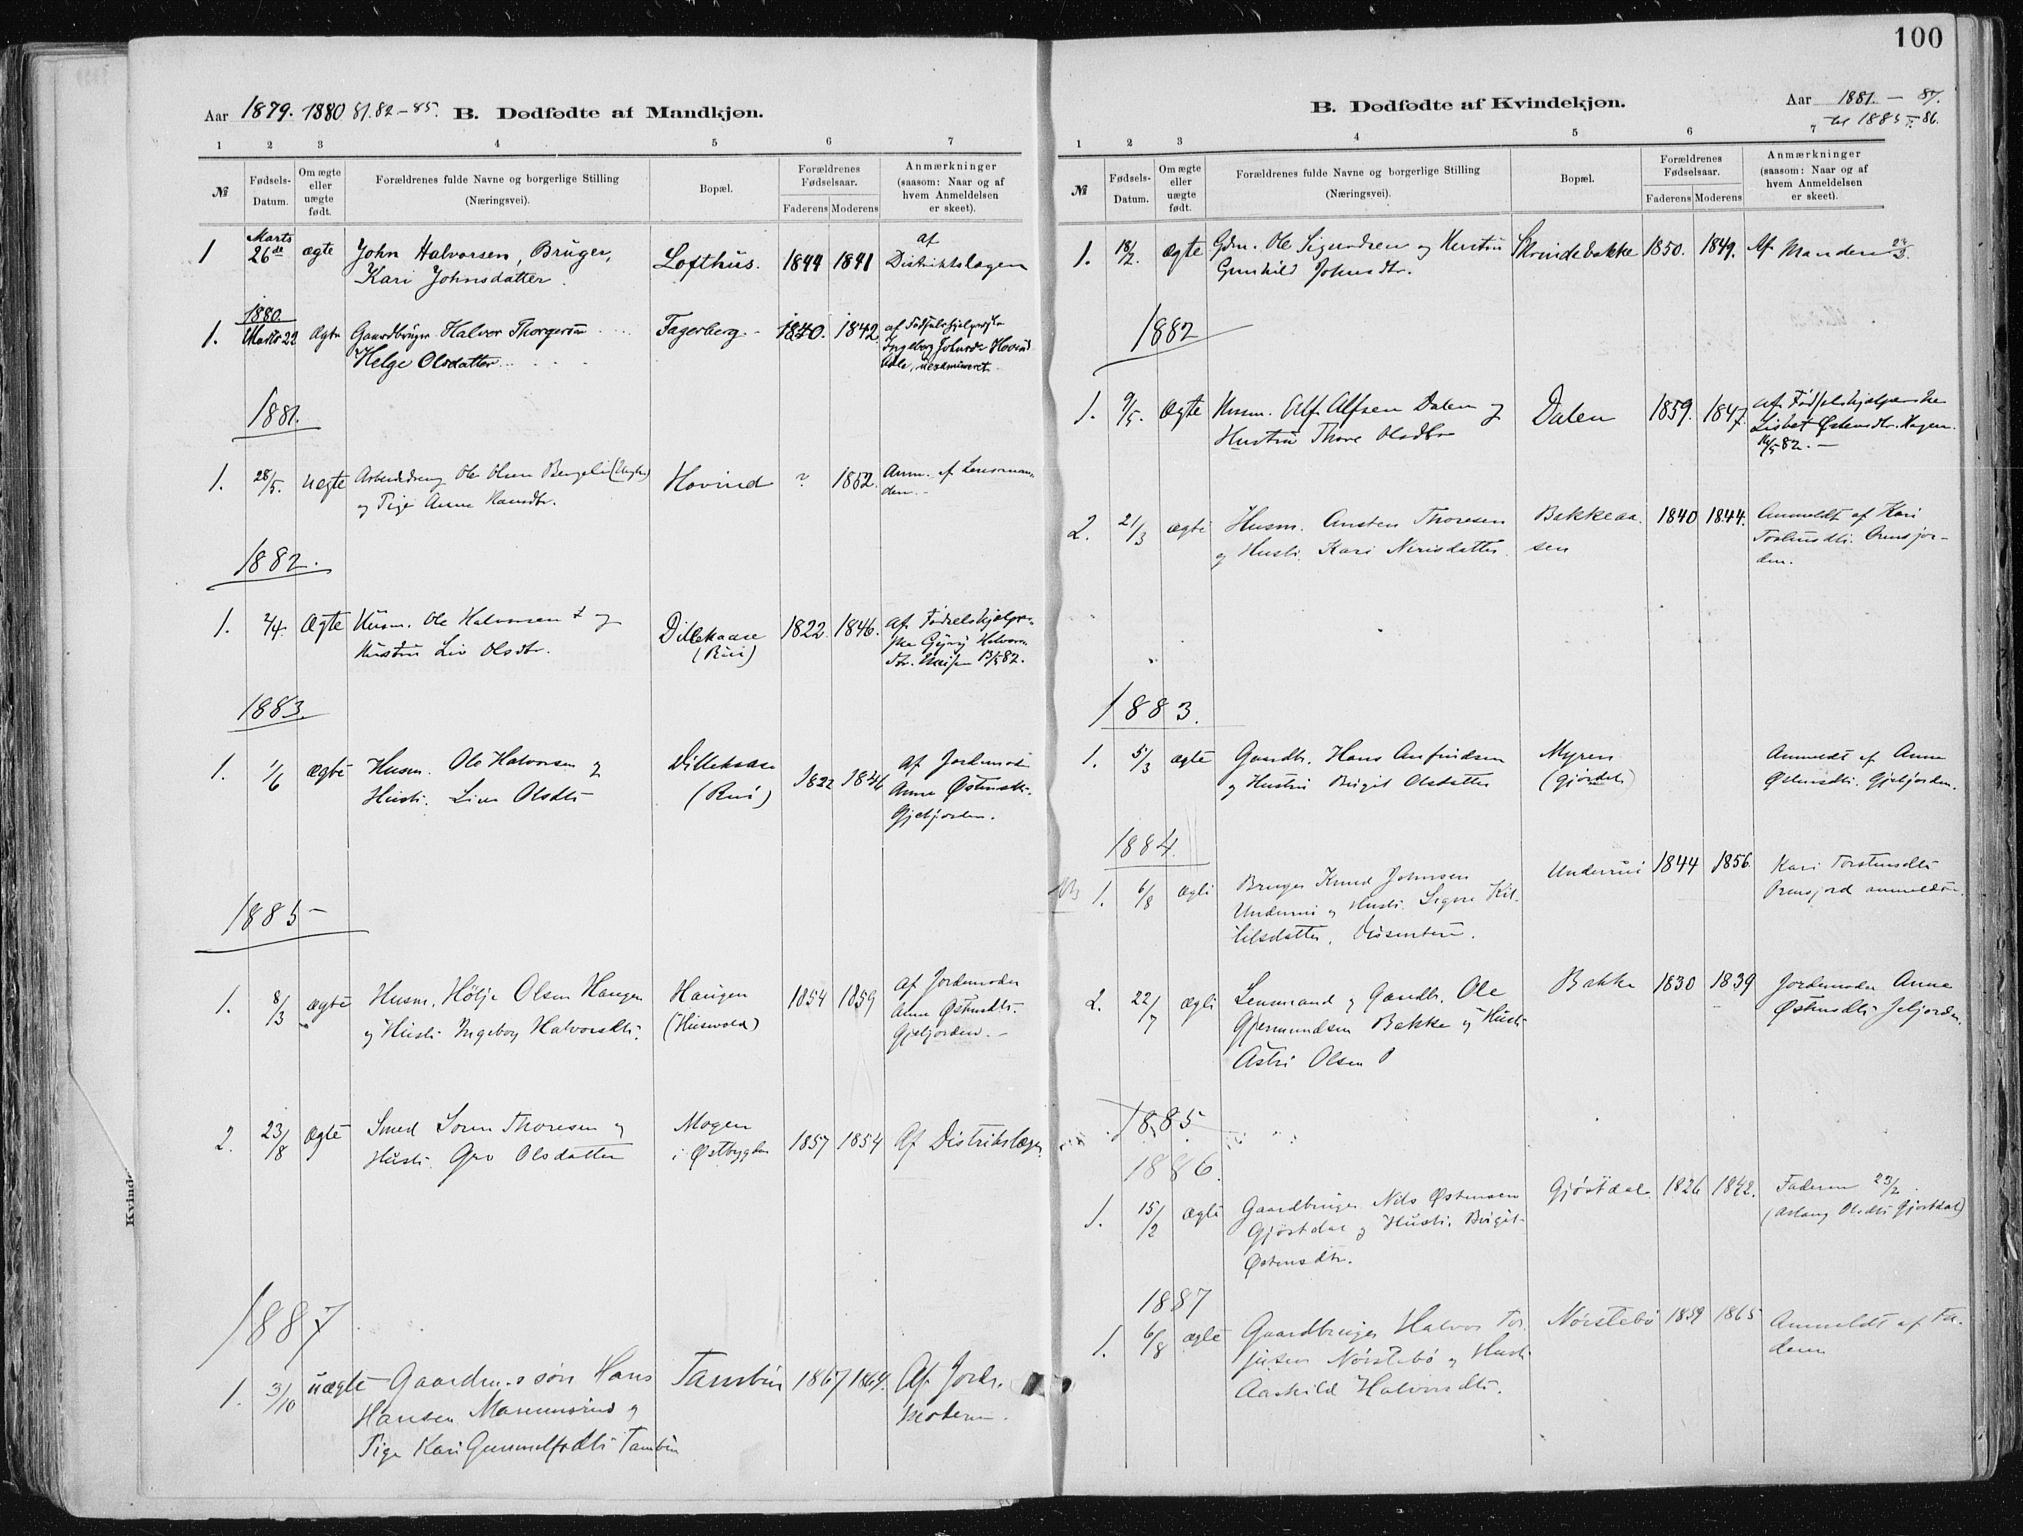 100
Aar 1879. 1880 81. 82 - 85. B. Dødfødte af Mandkjøn.
1 2 3 4 5 6 7
№
Fødsels-Datum.
Om ægte eller uægte født.
Forældrenes fulde Navne og borgerlige Stilling
(Næringsvei).
Bopæl.
Forældrenes Fødselsaar.
Faderens Moderens
Anmærkninger
(saasom: Naar og af
hvem Anmeldelsen
er skeet).
Marts af
1 26de ægte John Halvorsen, Bruger, Lofthus. 1844 1841 Distriktslægen
Kari Johnsdatter.
1880.
1. Marts 22 Ægte Gaardbruger Halvor Thorgersen Fagerberg. 1840. 1842. af Fødselshjælperske
Helge Olsdatter Ingeborg Johnsdr Hovind
uexamineret
1881.
1. 28/5. uægte Arbeidsdreng Ole Olsen Hovind ? 1852. Anm. af Lensman-
og Pige Anne Hansdtr. den.
1882.
1. 2/4. Ægte Husm. Ole Halvorsen og Dillekaase 1822. 1846. af Fødselshjælper-
Hustru Liv Olsdtr. (Rui) ske Halvors-
dtr. 13/5 82.
1883.
1. 1/6 ægte Husm. Ole Halvorsen og Dillekaase 1822 1846 af Jordemoder
Hustr. Live Olsdtr (Rui) Anne Østensdtr.
Gjeljorden.
1885
1. 8/3 ægte Husm. Hølje Olsen Haugen Haugen 1854 1859 af Jordemoder
og Hustr Ingeborg Halvorsdtr. Anne Østensdtr.
Gjeljorden.
2. 23/8 ægte Smed Søren Thoresen og Mogen 1857 1854 Af Distriktslægen
Hustr. Gro Olsdatter i Østbygden
1887
1. 3/10 uægte Gaardm.s søn Hans Tambur 1867 1864. Af Jorde-
Hansen og moderen.
Pige Kari
B. Dødfødte af Kvindekjøn. Aar 1881. - 87.
til 1885 - 86.
1 2 3 4 5 6 7
№
Fødsels-Datum.
Om ægte eller uægte født.
Forældrenes fulde Navne og borgerlige Stilling
(Næringsvei).
Bopæl.
Forældrenes Fødselsaar.
Faderens Moderens
Anmærkninger
(saasom: Naar og af
hvem Anmeldelsen
er skeet).
1. 18/2. ægte Gdm. Ole Sigurdsen og Hustru Skrindebakke 1850. 1849. Af Manden
Gunhild Johnsdtr.
1882
1. 9/5. ægte Husm. Alf Alfsen Dalen og Dalen 1859. 1847. af Fødselshjælperske
Hustru Thore Olsdtr Lisbet Østensdtr. Haugen
16/5 82.
2. 21/3 ægte Husm. Østen Thoresen Bakkeaa- 1840 1844. Anmeldt af Kari
og Hustr. Kari Nirisdatter sen Torsteinsdtr. Ørnsjor-
den.
1883.
1. 5/3 ægte Gaardbr. Hans Anfindsen Myren Anmeldt af Anne
og Hustru Birgit Olsdatter Østensdtr. Gjeljorden.
1884.
1. 6/8 ægte Bruger Knud Johnsen Underrui 1844 1856. Kari Torsteinsdtr
Underrui og Hustr. Signe Kit-
tilsdatter,
2. 22/7 ægte Lensmand og Gaardbr. Ole Bakke 1830 1839 Jordemoder Anne
Gjermundsen Bakke og Hustr Østensdtr Jeljorden.
Astri Olsen
1885
1886.
1. 15/2 ægte Gaardbruger Nils Østensen Gjøstdal 1826 1842. Faderen 23/2.
Gjøstdal og Hustr. Birgit (Aslaug Olsdtr Gjøstdal)
Østensdtr.
1887
1. 6/8 ægte Gaardbruger Halvor Tor- Nørstebø 1859 1865 Anmeldt af Fa-
jusen Nørstebø og Hustr deren
Aashild Halvorsdtr.